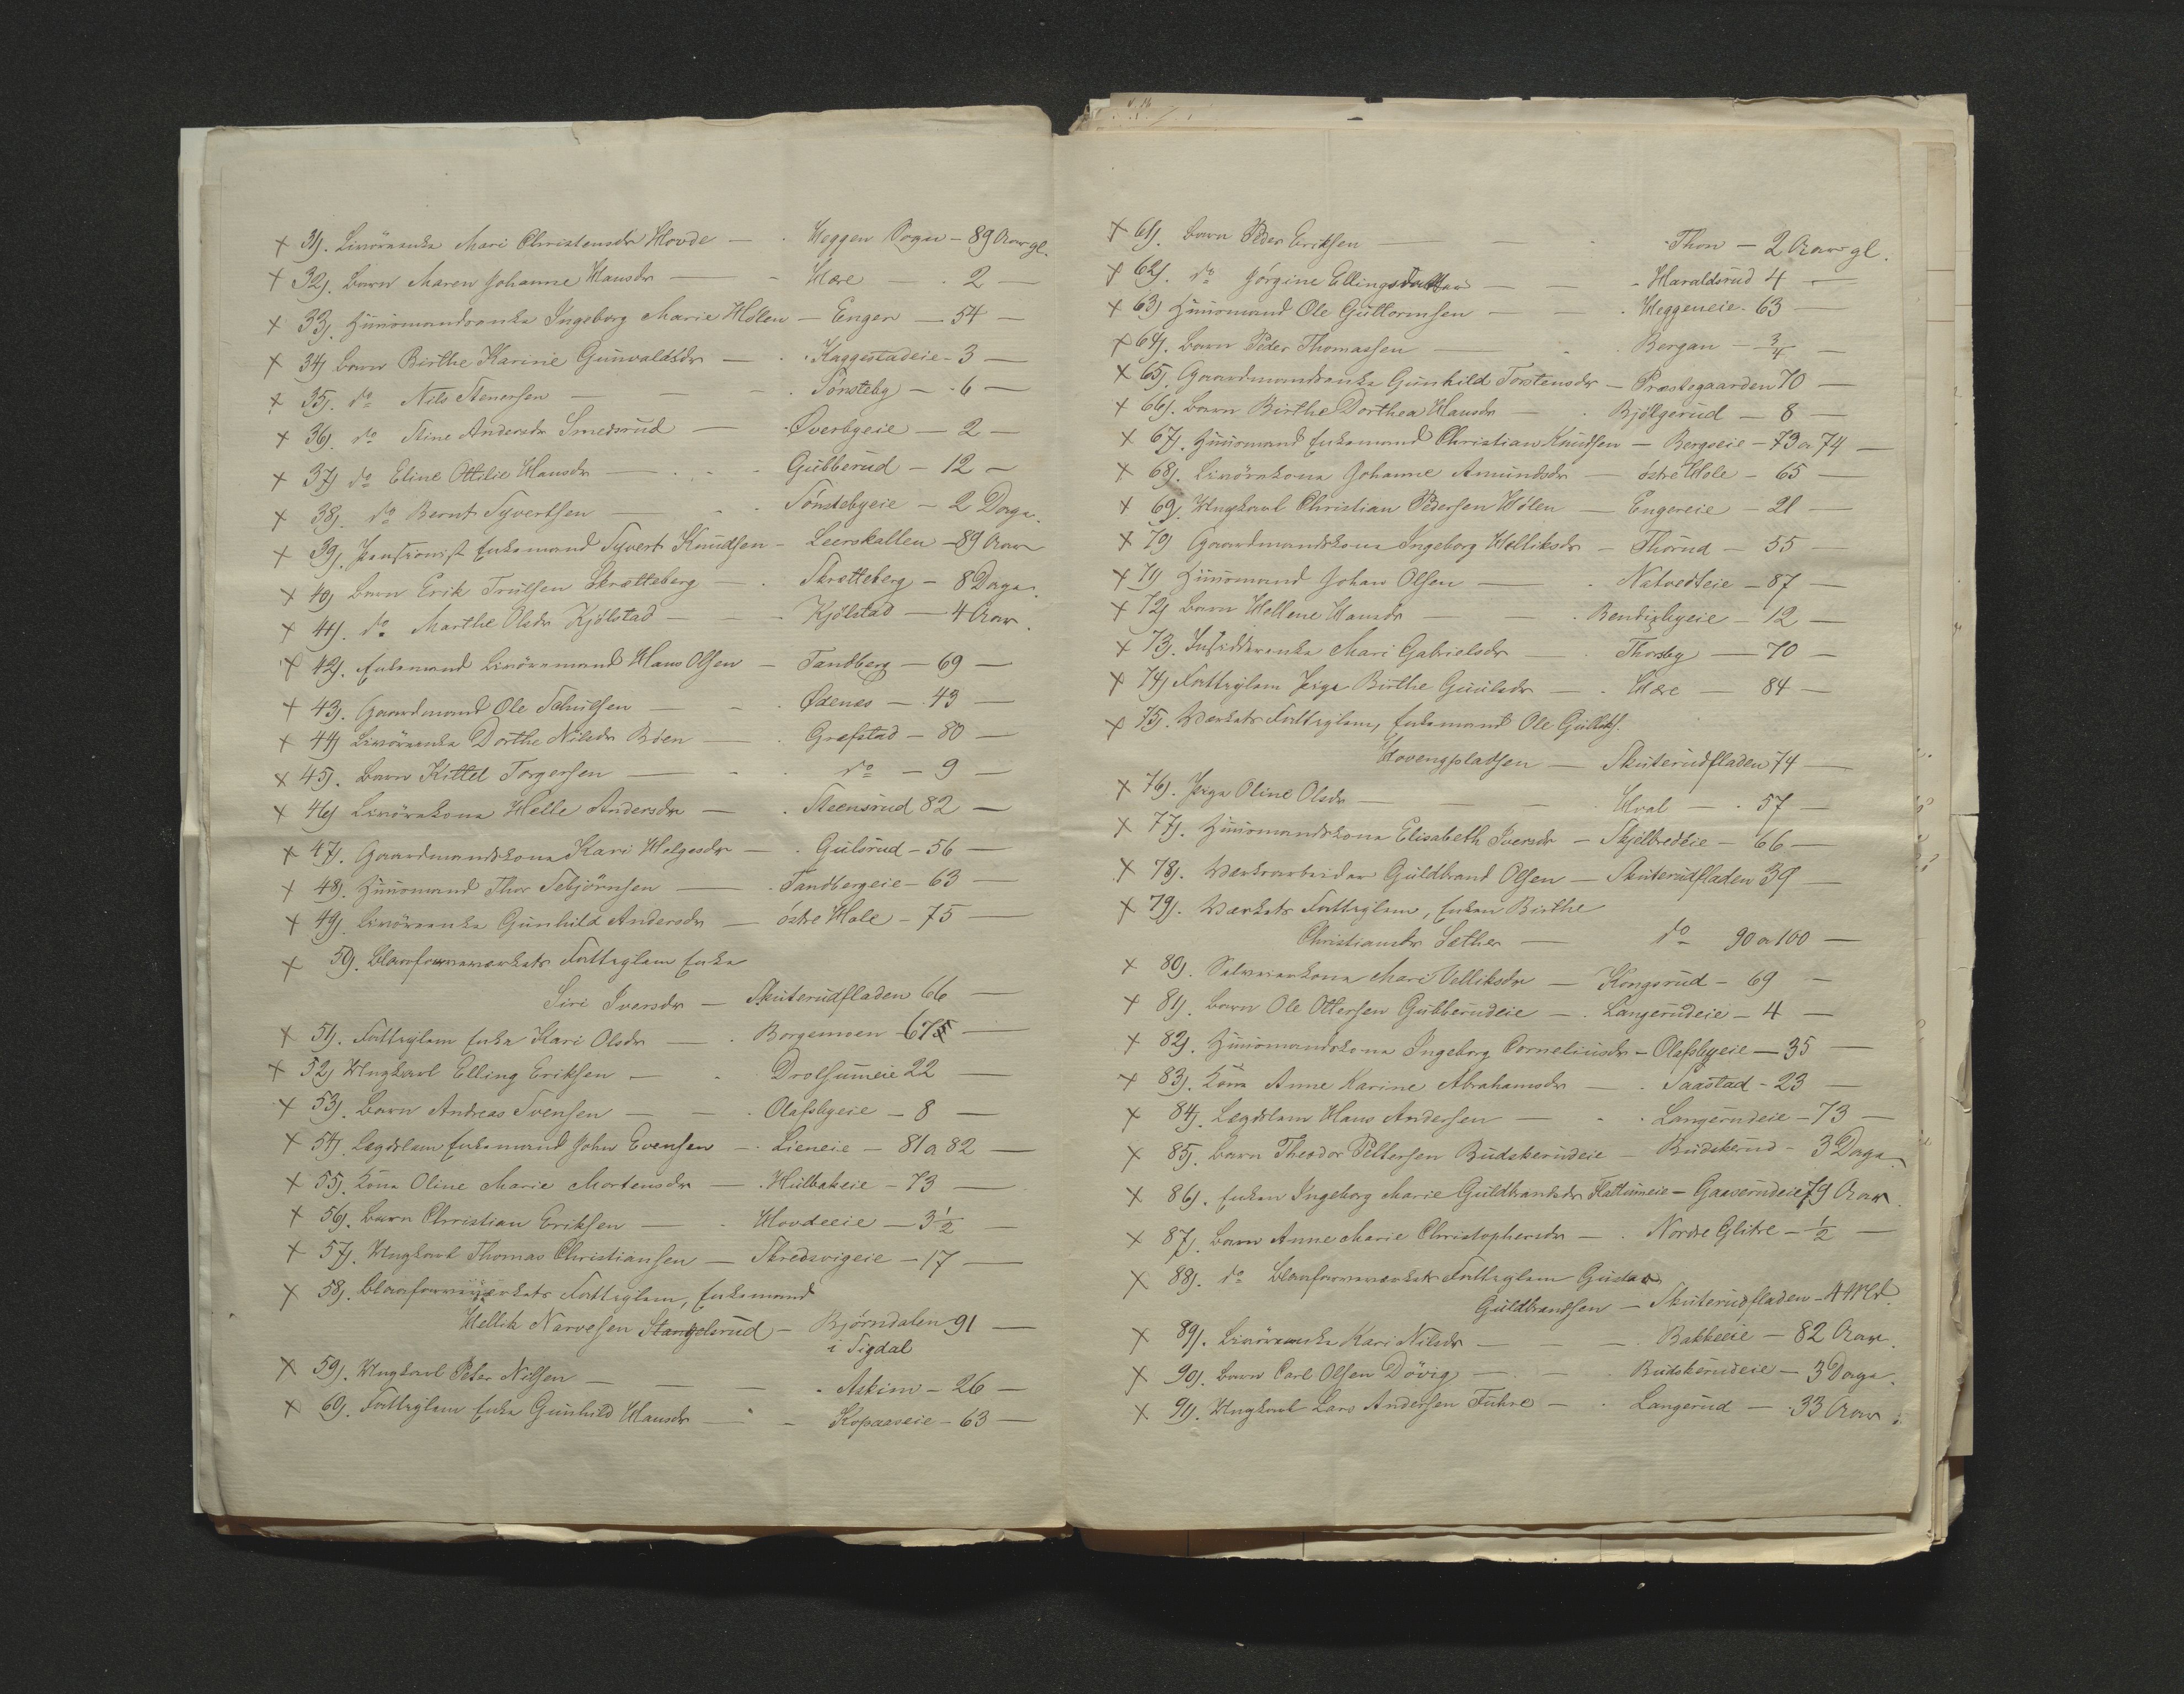 x 31). Livöreenke Mari Christensdr Hovde — Heggen Sogn - 89 Aar gl.
x 32). Barn Maren Johanne Hansdr — Hære — 2 —
x 33). Huusmandsenke Ingeborg Marie Hölen — Enger — 54 —
x 34) Barn Birthe Karine Gunvaldsdr — Kaggestadeie - 3 —
x 35). do Nils Stenersen — Tönsteby — 6 —
x 36). do Stine Andersdr Smedsrud — Øverbyeie — 2 —
x 37) do Eline Ottilie Hansdr — Gubberud — 12 —
x 38). do Bernt Syvertsen — Tönstebyeie — 2 Dage.
x 39). Pensionist Enkemand Syvert Knudsen - Leerskallen - 89 Aar
x 40) Barn Erik Trulsen Skrætteberg — Skrætteberg — 8 Dage.
x 41). do Marthe Olsdr Kjölstad — Kjölstad — 4 Aar.
x 42). Enkemand Livöremand Hans Olsen — Tandberg — 69 —
x 43). Gaardmand Ole — Ødenes — 43 —
x 44) Livöreenke Dorthe Nilsdr Böen — Grefstad — 80 —
x 45). Barn Kittel Torgersen — do — 9 —
x 46) Livörekone Helle Andersdr — Steensrud 82 —
x 47). Gaardmandskone Kari Helgesdr — Gulsrud - 56 —
x 48). Huusmand Thor Tebjörnsen — Tandbergeie - 63 —
x 49). Livöreenke Gunhild Andersdr — östre Hole - 75 —
x 50). Blaafarveværkets Fattiglem Enke
Siri Iversdr — Skuterudfladen 66 —
x 51). Fattiglem Enke Kari Olsdr — Borgemoen - 67 —
x 52) Ungkarl Elling Eriksen — Drolsumeie 22 —
x 53). Barn Andreas Svensen — Olafsbyeie — 8 —
x 54). Legdslem Enkemand John Evensen — Lieneie — 81 a 82 —
x 55). Kone Oline Marie Mortensdr — Hulbakeie - 73 —
x 56). Barn Christian Eriksen — Hovdeeie — 3 1/2 —
x 57). Ungkarl Thomas Christiansen — Skredsvigeie — 17 —
x 58). Blaafarveværkets Fattiglem, Enkemand
Hellik Narvesen Stangelsrud — Bjørndalen 91 —
i Sigdal
x 59). Ungkarl Peter Nilsen — Askim - 26 —
x 60). Fattiglem Enke Gunhild Hansdr — Kopaaseie - 63 —
x 61). Barn Peder Eriksen — Thon — 2 Aar gl.
x 62). do Jörgine Ellingsdatter — Haraldsrud 4 —
x 63) Huusmand Ole Guttormsen — Heggeneie - 63 —
x 64). Barn Peder Thomassen — Bergan — 3/4 —
x 65). Gaardmandsenke Gunhild Torstensdr — Præstegaarden 70 —
x 66). Barn Birthe Dorthea Hansdr — Bjölgerud — 8 —
x 67). Huusmand Enkemand Christian Knudsen — Bergseie - 73 a 74 —
x 68). Livörekone Johanne Amundsdr — östre Hole — 65 —
x 69). Ungkarl Christian Pedersen Hölen — Engereie — 21 —
x 70) Gaardmandskone Ingeborg Helliksdr — Thorud — 55 —
x 71) Huusmand Johan Olsen — Natvedteie - 87 —
x 72) Barn Hellene Hansdr — Bendixbyeie — 12 —
x 73). Inderstenke Mari Gabrielsdr — Thorsby — 70 —
x 74) Fattiglem Pige Birthe Guulsdr — Hære — 84 —
x 75). Værkets Fattiglem, Enkemand Ole Gulliks.
Hovengpladsen — Skuterudfladen 74 —
x 76). Pige Oline Olsdr — Hval — 57 —
x 77). Huusmandskone Elisabeth Iversdr — Skjelbredeie — 66 —
x 78). Værksarbeider Guldbrand Olsen — Skuterudfladen 39 —
x 79). Værkets Fattiglem, Enken Birthe
Christiansdr Sæther — do 90 a 100 —
x 80). Mari Helliksdr — Kongsrud - 69 —
x 81). Barn Ole Ottersen Gubberudeie — Langerudeie - 4 —
x 82). Huusmandskone Ingeborg Corneliusdr - Olafsbyeie — 35 —
x 83). Kone Anne Karine Abrahamsdr — Saastad - 23 —
x 84). Legdslem Hans Andersen — Langerudeie - 73 —
x 85). Barn Theodor Pettersen Budskerudeie — Budskerud - 3 Dage
x 86). Enken Ingeborg Marie Guldbrandsdr Flattumeie - Gaaserudeie 79 Aar.
x 87). Barn Anne Marie Christophersdr — Nordre Glitre — 1/2 —
x 88). do Blaafarveværkets Fattiglem Gustav
Guldbrandsen — Skuterudfladen - 4 Mdr.
x 89). Livöreenke Kari Nilsdr — Bakkeeie — 82 Aar.
x 90). Barn Carl Olsen Dövig — Budskerudeie — 3 Dage.
x 91). Ungkarl Lars Andersen Fuhre — Langerud — 33 Aar.